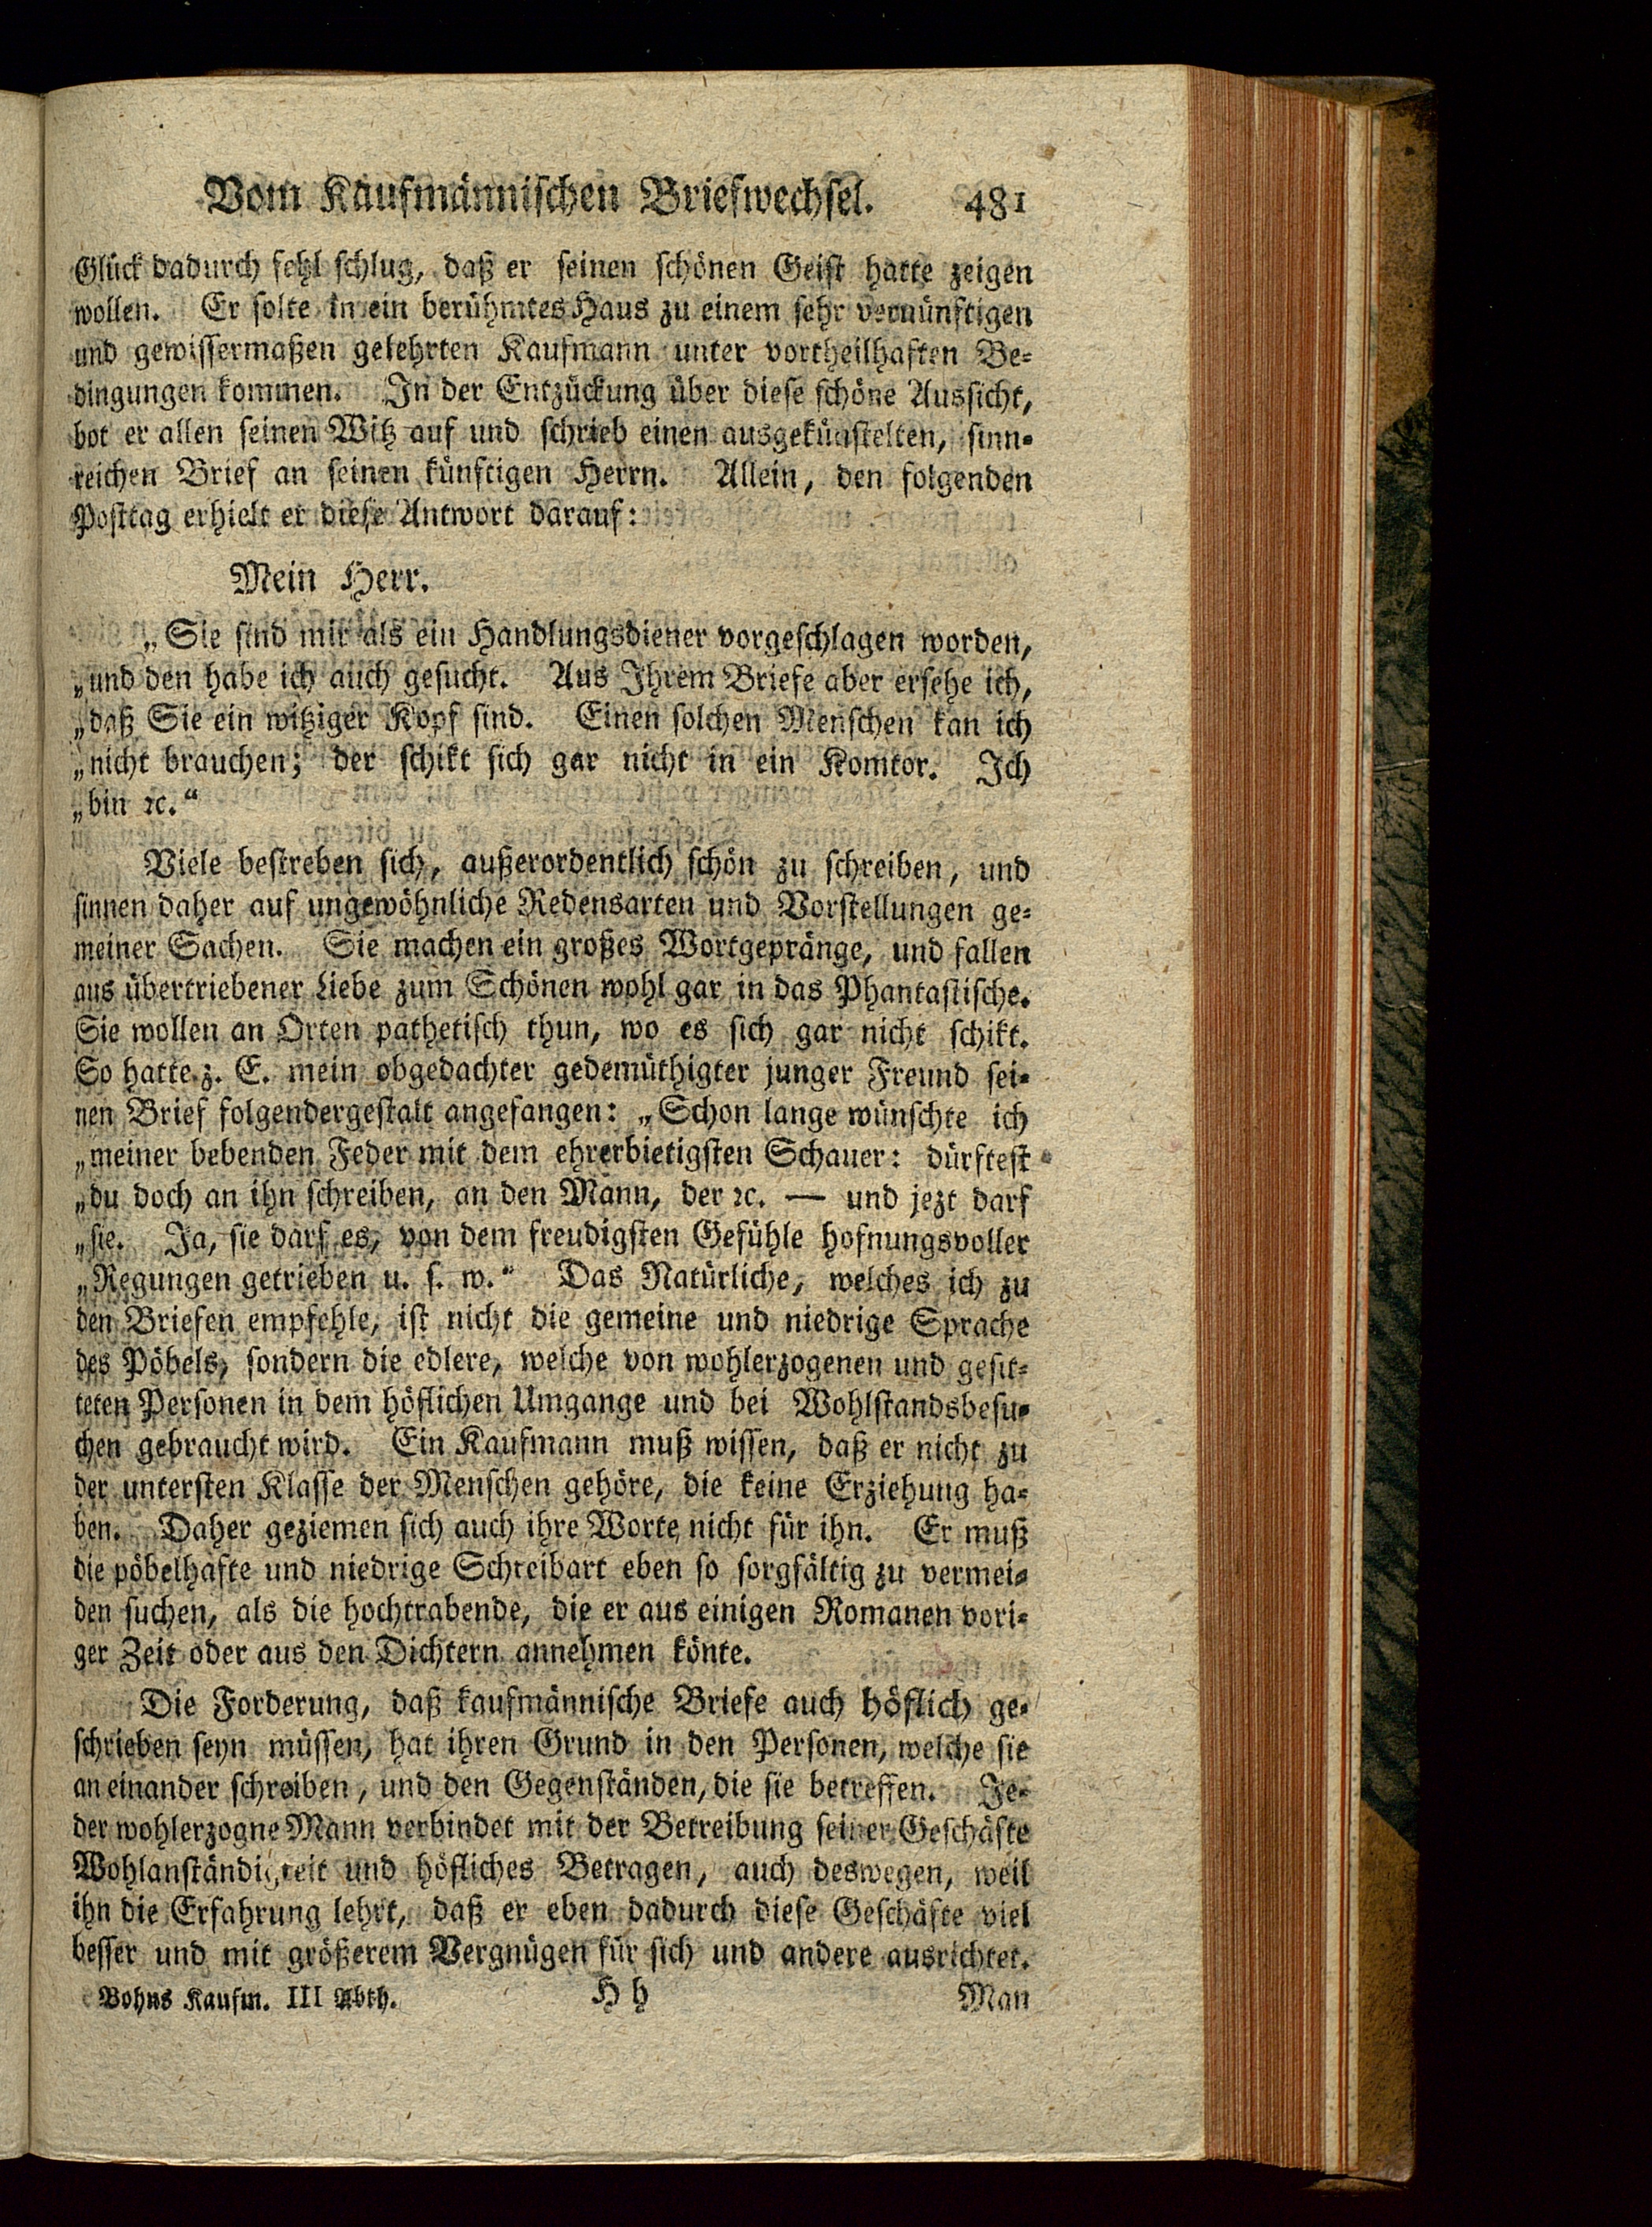 Vom Kaufmännischen Briefwechsel. 481
Glück dadurch fehl schlug, daß er seinen schönen Geist hatte zeigen
wollen. Er solte in ein berühmtes Haus zu einem sehr vernünftigen
und gewissermaßen gelehrten Kaufmann unter vortheilhaften Be-
dingungen kommen. In der Entzückung über diese schöne Aussicht,
bot er allen seinen Witz auf und schrieb einen ausgekünstelten, sinn-
reichen Brief an seinen künftigen Herrn. Allein, den folgenden
Posttag erhielt er diese Antwort darauf:
Mein Herr.
„Sie sind mir als ein Handlungsdiener vorgeschlagen worden,
„und den habe ich auch gesucht. Aus Ihrem Briefe aber ersehe ich,
„daß Sie ein witziger Kopf sind. Einen solchen Menschen kan ich
„nicht brauchen; der schikt sich gar nicht in ein Komtor. Ich
„bin ꝛc.“
Viele bestreben sich, außerordentlich schön zu schreiben, und
sinnen daher auf ungewöhnliche Redensarten und Vorstellungen ge-
meiner Sachen. Sie machen ein großes Wortgepränge, und fallen
aus übertriebener Liebe zum Schönen wohl gar in das Phantastische.
Sie wollen an Orten pathetisch thun, wo es sich gar nicht schikt.
So hatte z. E. mein obgedachter gedemüthigter junger Freund sei-
nen Brief folgendergestalt angefangen: „Schon lange wünschte ich
„meiner bebenden Feder mit dem ehrerbietigsten Schauer: dürftest
„du doch an ihn schreiben, an den Mann, der ꝛc. — und jezt darf
„sie. Ja, sie darf es, von dem freudigsten Gefühle hofnungsvoller
„Regungen getrieben u. s. w.“ Das Natürliche, welches ich zu
den Briefen empfehle, ist nicht die gemeine und niedrige Sprache
des Pöbels, sondern die edlere, welche von wohlerzogenen und gesit-
teten Personen in dem höflichen Umgange und bei Wohlstandsbesu-
chen gebraucht wird. Ein Kaufmann muß wissen, daß er nicht zu
der untersten Klasse der Menschen gehöre, die keine Erziehung ha-
ben. Daher geziemen sich auch ihre Worte nicht für ihn. Er muß
die pöbelhafte und niedrige Schreibart eben so sorgfältig zu vermei-
den suchen, als die hochtrabende, die er aus einigen Romanen vori-
ger Zeit oder aus den Dichtern annehmen könte.
Die Forderung, daß kaufmännische Briefe auch höflich ge-
schrieben seyn müssen, hat ihren Grund in den Personen, welche sie
an einander schreiben, und den Gegenständen, die sie betreffen. Je-
der wohlerzogne Mann verbindet mit der Betreibung seiner Geschäfte
Wohlanständigkeit und höfliches Betragen, auch deswegen, weil
ihn die Erfahrung lehrt, daß er eben dadurch diese Geschäfte viel
besser und mit größerem Vergnügen für sich und andere ausrichtet.
Bohns Kaufm. III Abth. H h Man